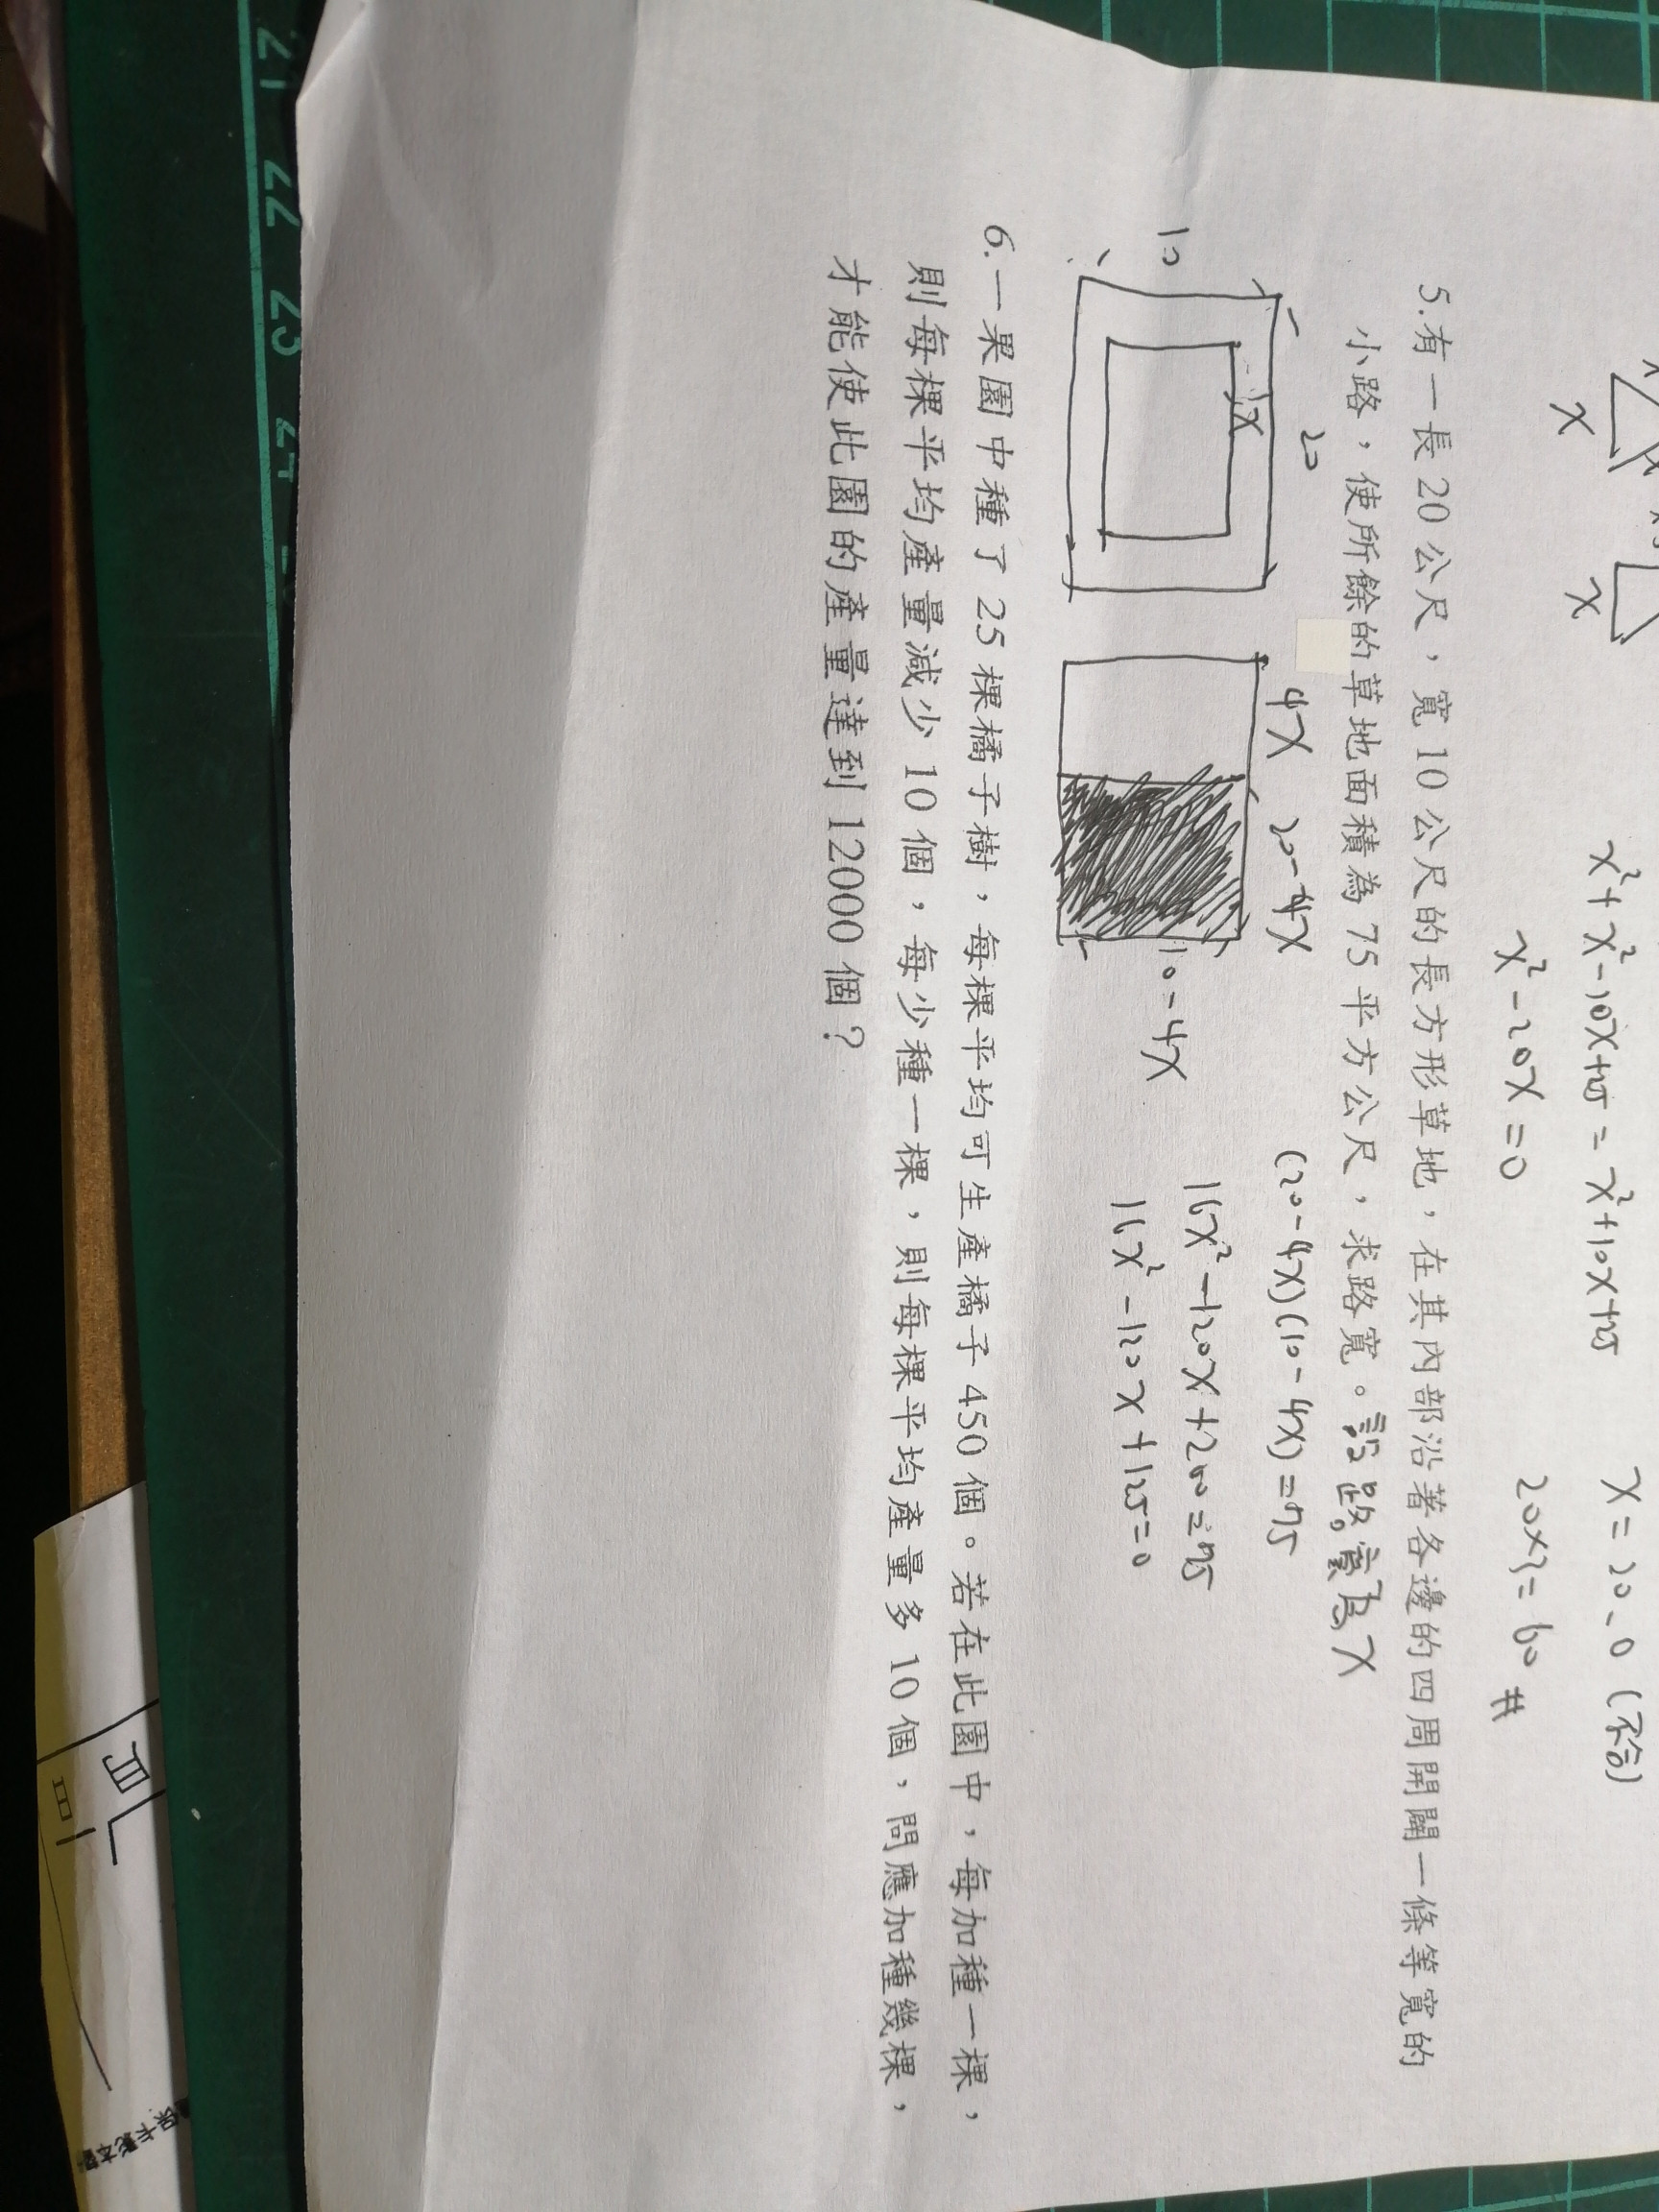 x² + x² - 10x + 25 = x² + 10x + 25
x = 20、0 (不合)
x² - 20x = 0
20×3 = 60 #
x
x
5.有一長 20 公尺，寬 10 公尺的長方形草地，在其內部沿著各邊的四周開闢一條等寬的
小路，使所餘的草地面積為 75 平方公尺，求路寬。設路寬為x
20
10
x
4x
20-4x
10-4x
(20-4x)(10-4x)=75
16x² - 120x + 200 = 75
16x² - 120x + 125 = 0
6.一果園中種了 25 棵橘子樹，每棵平均可生產橘子 450 個。若在此園中，每加種一棵，
則每棵平均產量減少 10 個，每少種一棵，則每棵平均產量多 10 個，問應加種幾棵，
才能使此園的產量達到 12000 個？
21 22 23 24
保卡影本